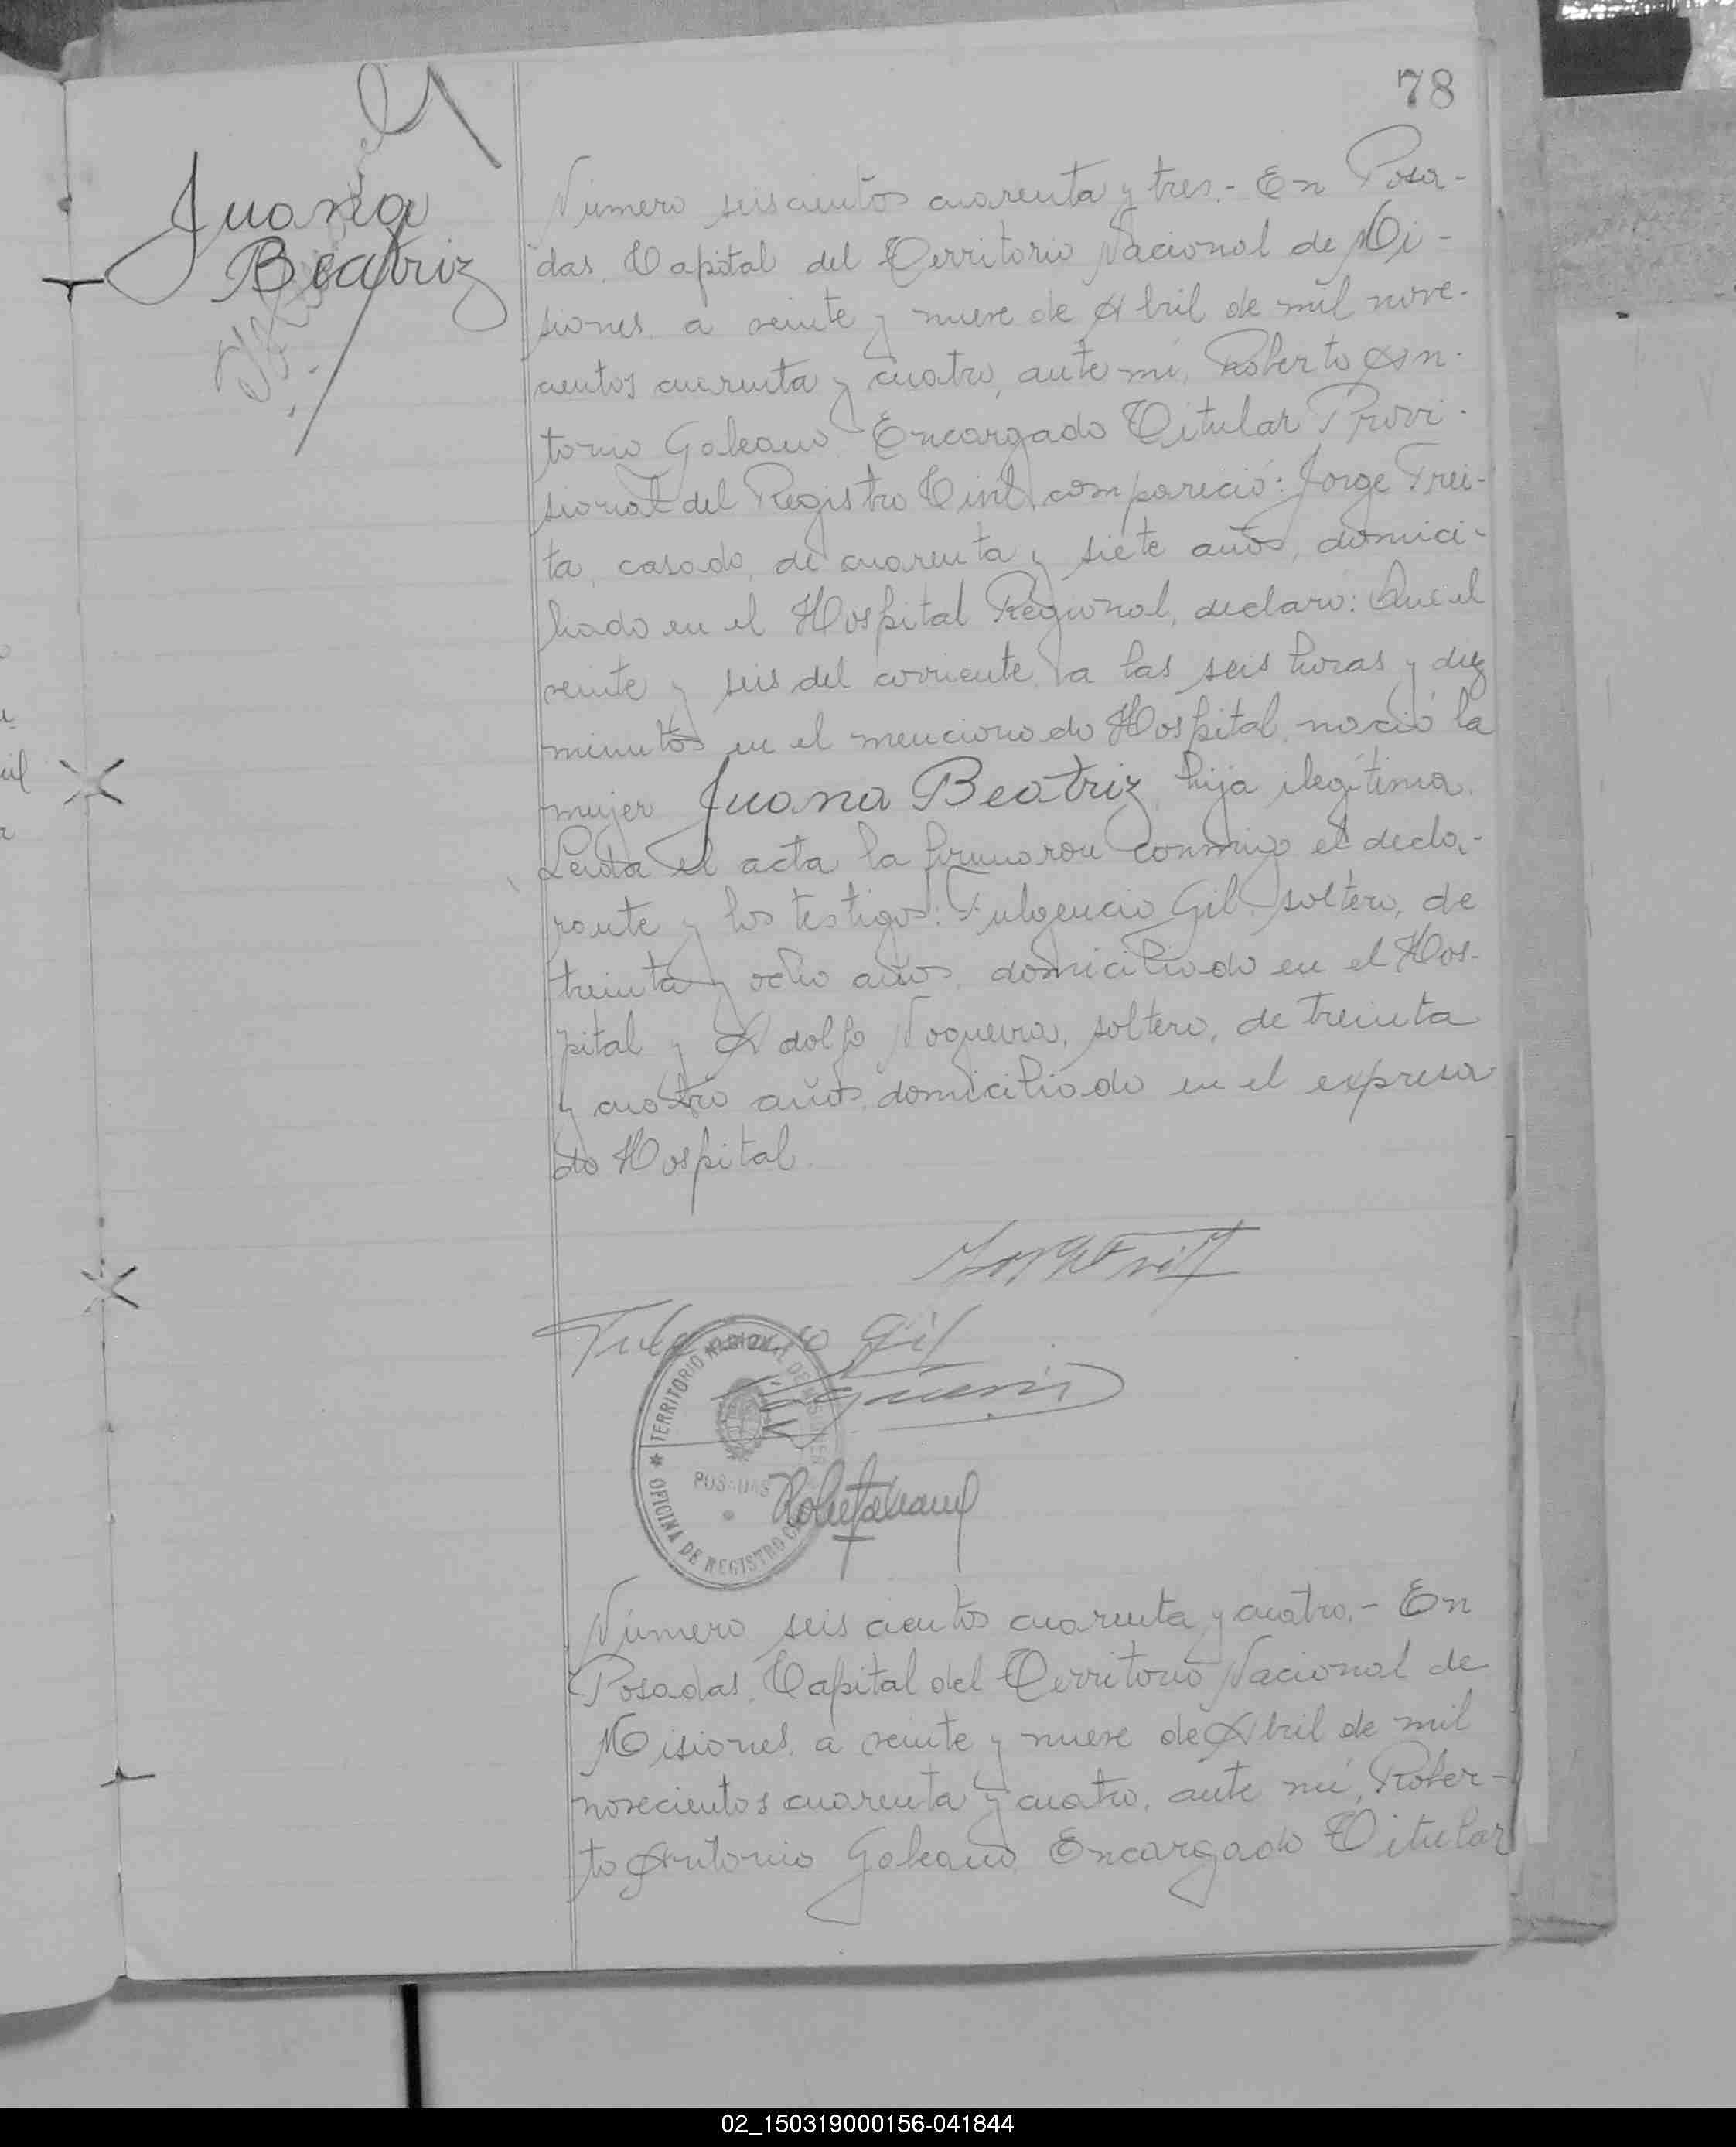 78
Juana
Beatriz
Número seiscientos cuarenta y tres.- En Posa-
das, Capital del Territorio Nacional de Mi-
siones, a veinte y nueve de Abril de mil nove-
cientos cuarenta y cuatro, ante mí, Roberto An-
tonio Galeano Encargado Titular Provi-
sional del Registro Civil, compareció: Jorge Frei-
ta, casado, de cuarenta y siete años, domici-
liado en el Hospital Regional, declaró: Que el
veinte y seis del corriente, a las seis horas y diez
minutos en el mencionado Hospital, nació la
mujer Juana Beatriz, hija ilegítima.
Leida el acta la firmaron conmigo el decla-
rante y los testigos: Fulgencio Gil, soltero, de
treinta y ocho años, domiciliado en el Hos-
pital y Adolfo Nogueira, soltero, de treinta
y cuatro años, domiciliado en el expresa
do Hospital.
Fulgencio Gil
TERRITORIO NACIONAL DE MISIONES
POSADAS
OFICINA DE REGISTRO
Número seiscientos cuarenta y cuatro.- En
Posadas, Capital del Territorio Nacional de
Misiones, a veinte y nueve de Abril de mil
novecientos cuarenta y cuatro, ante mí, Rober-
to Antonio Galeano, Encargado Titular
02_150319000156-041844